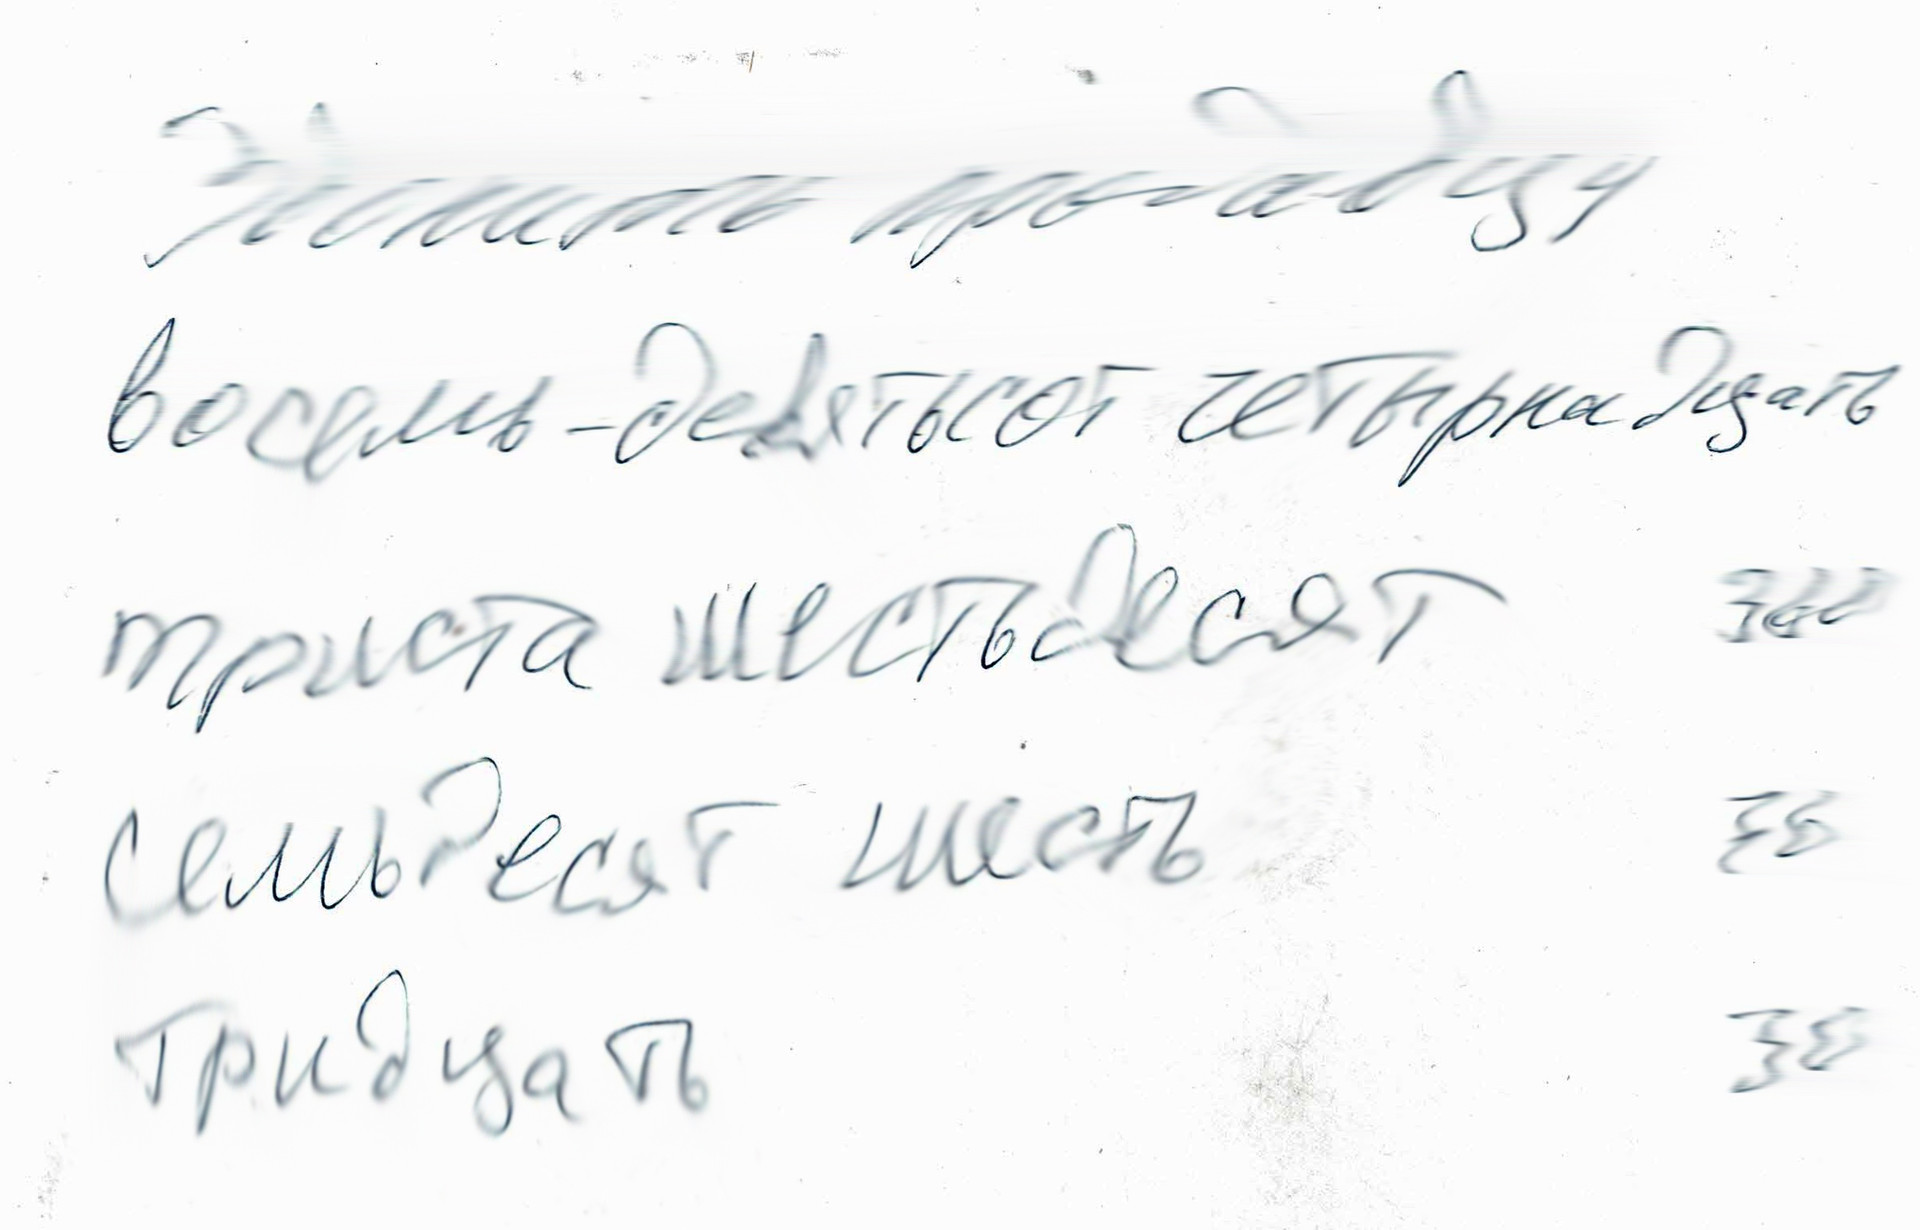 восемь - девятьсот четырнадцать
триста шестьдесят 360
семьдесят шесть 76
тридцать 30